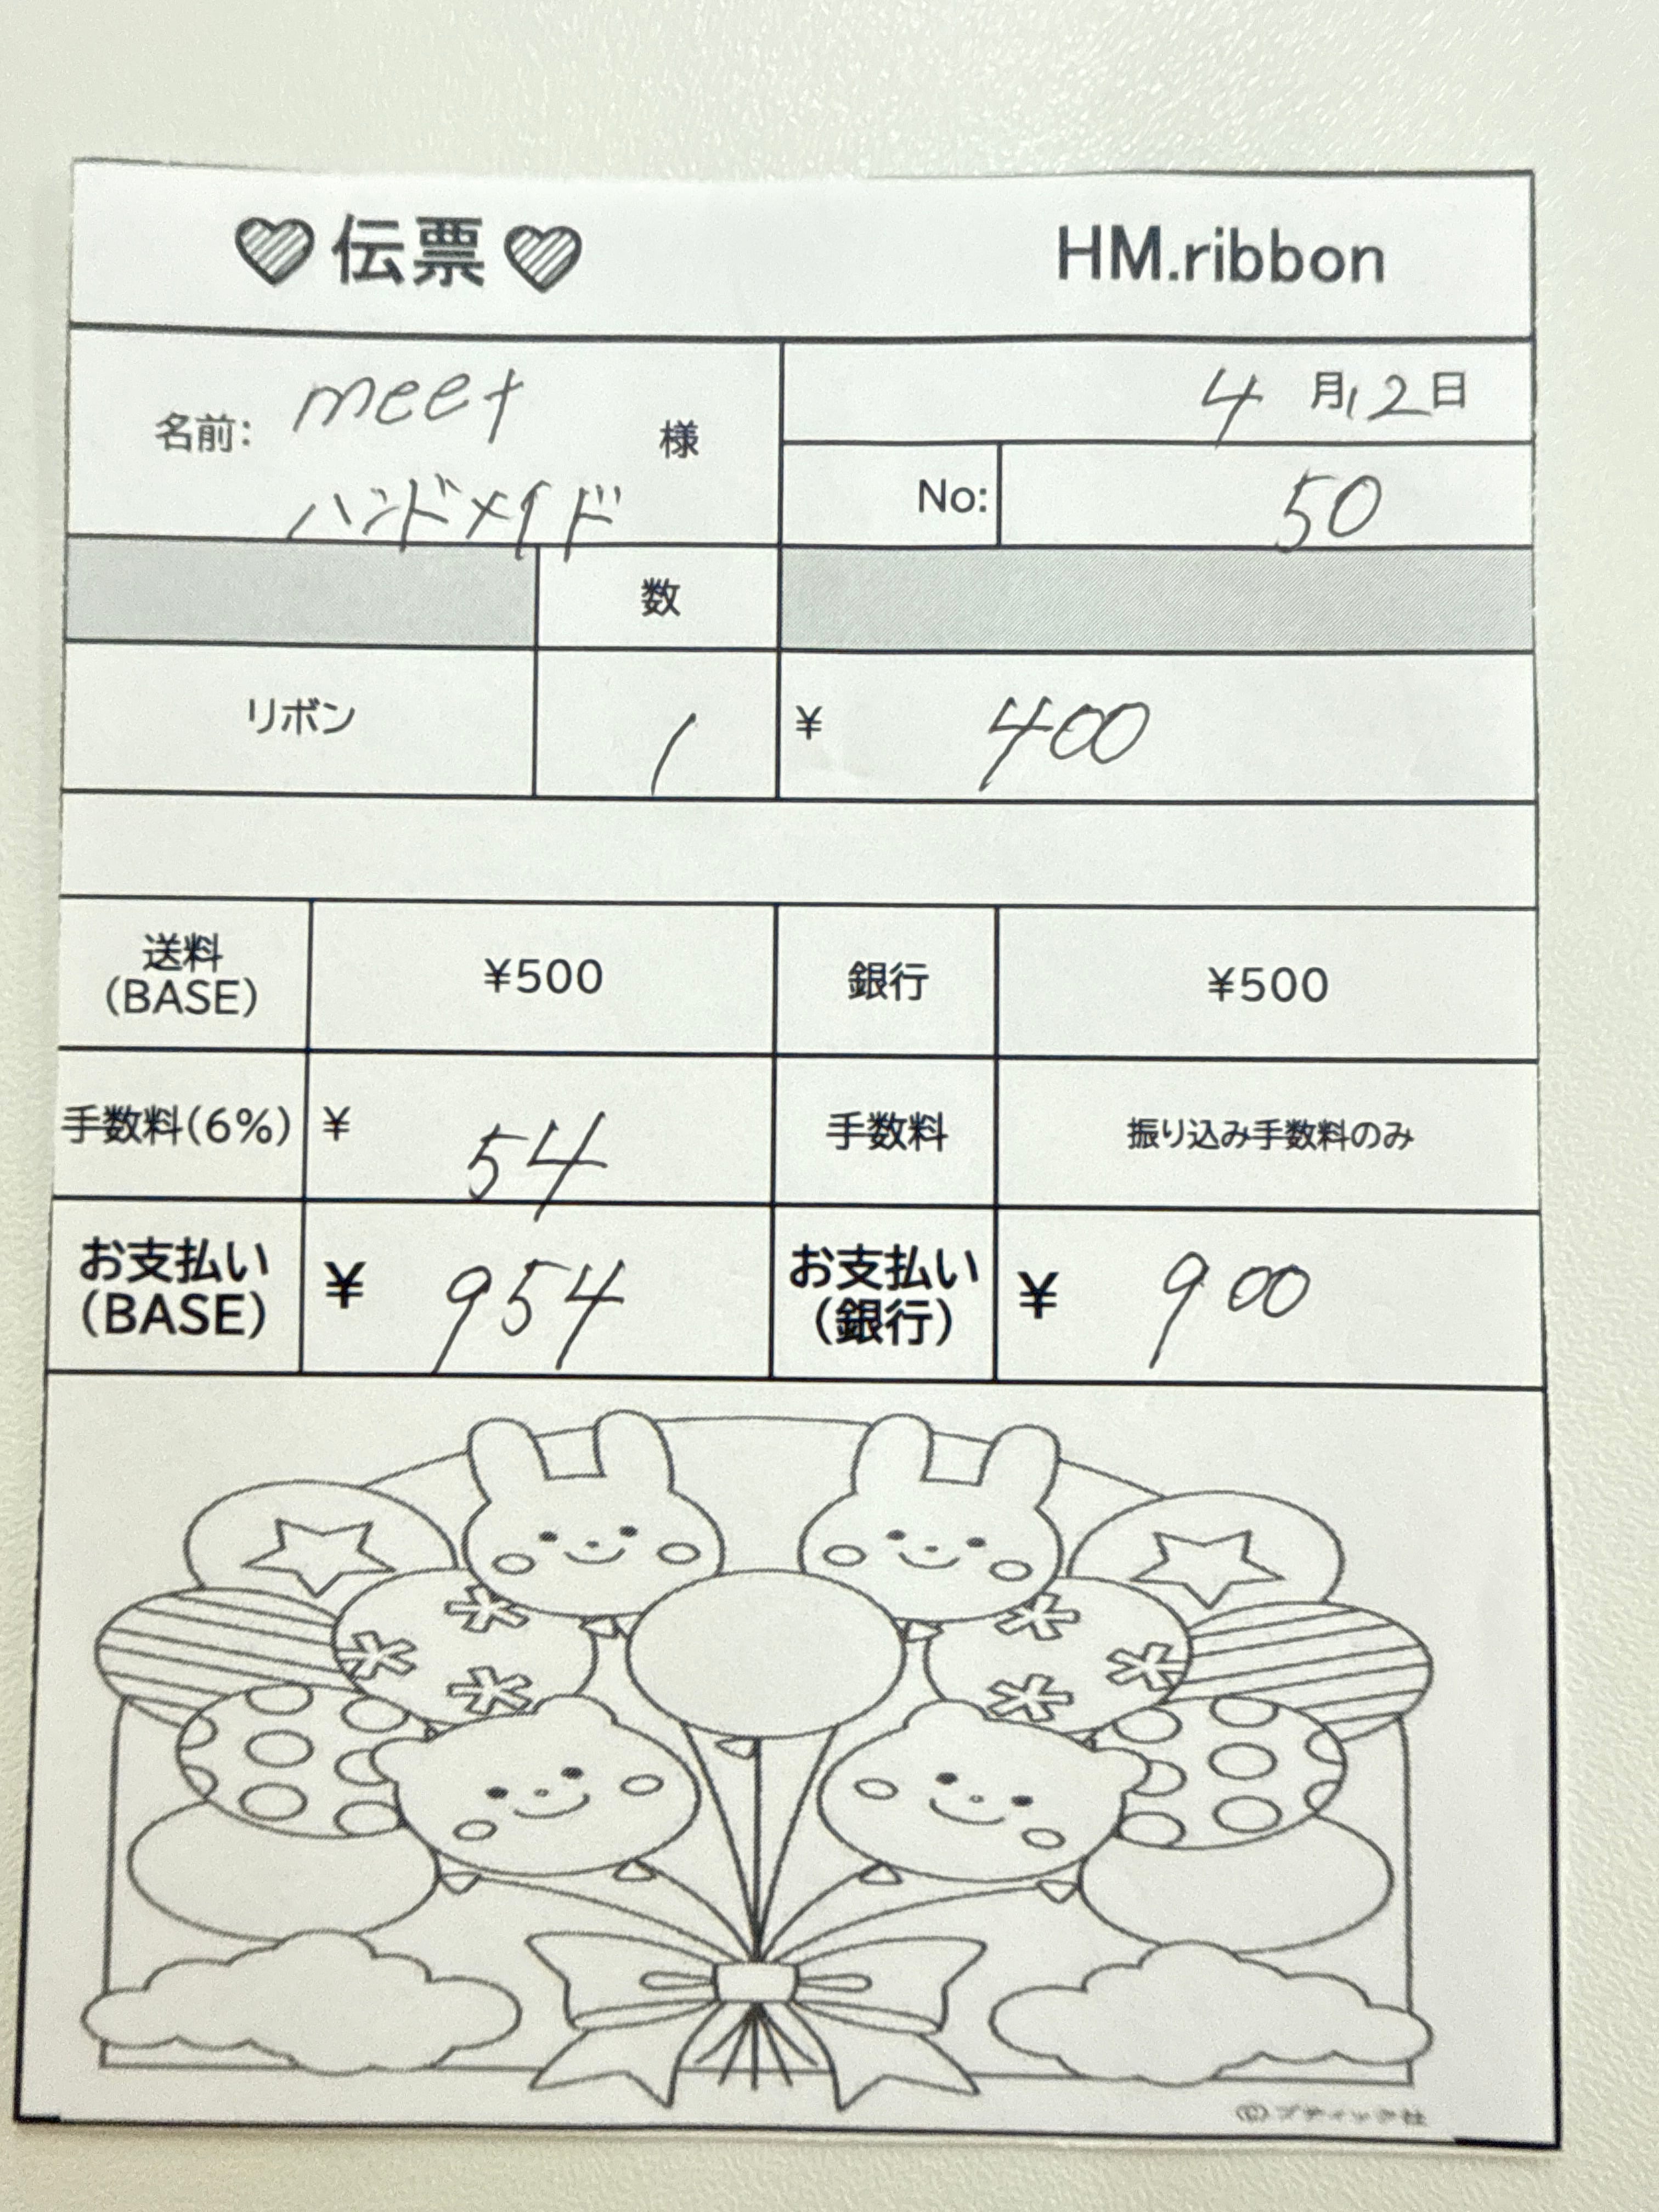 ♡伝票♡ HM.ribbon
名前: meet 様
ハンドメイド
4月12日
No: 50
数
リボン 1 ¥ 400
送料 (BASE) ¥500 銀行 ¥500
手数料(6%) ¥ 54 手数料 振り込み手数料のみ
お支払い (BASE) ¥ 954 お支払い (銀行) ¥ 900
©ブティック社